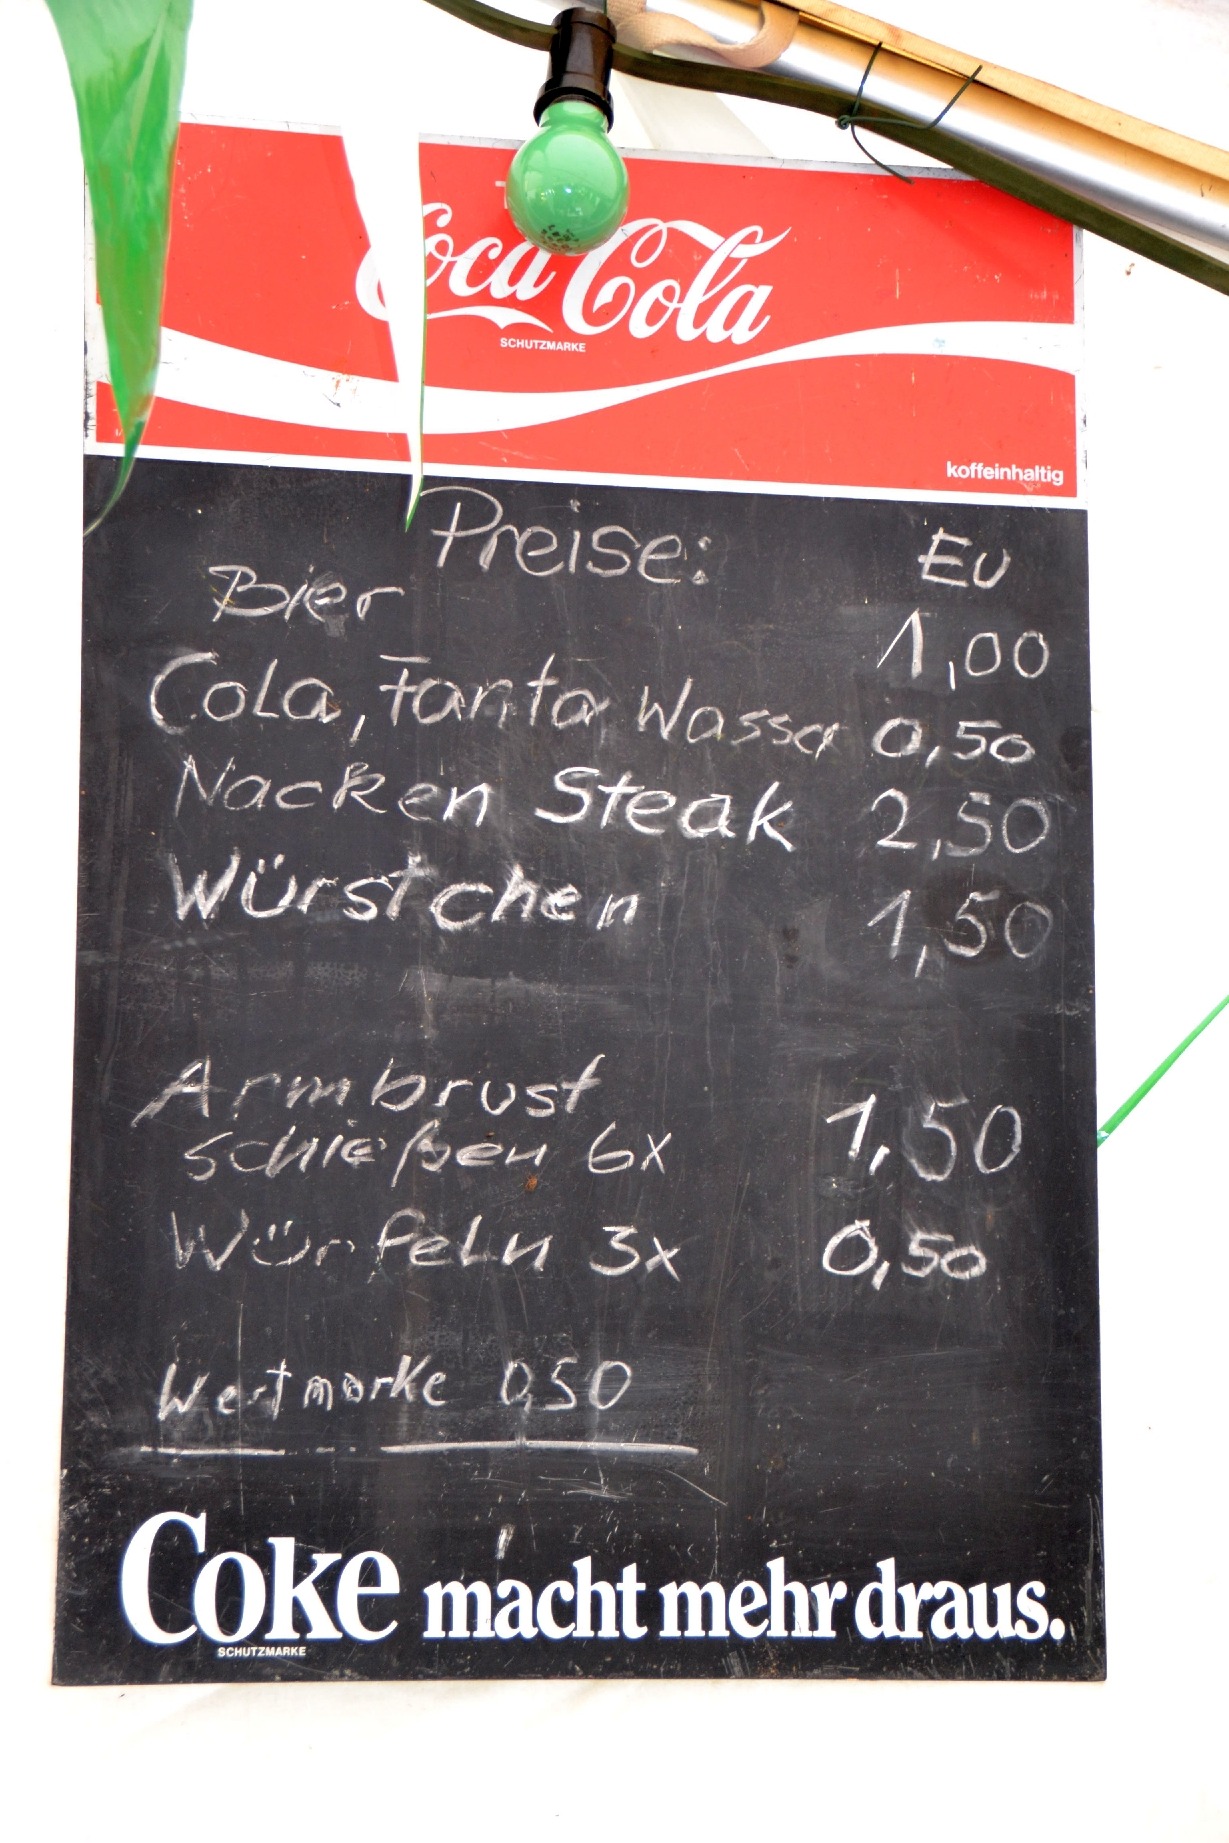 Coca-Cola
SCHUTZMARKE
koffeinhaltig
Preise: EU
Bier 1,00
Cola, Fanta Wasser 0,50
Nacken Steak 2,50
Würstchen 1,50
Armbrust
schießen 6x 1,50
Würfeln 3x 0,50
Wertmarke 0,50
Coke macht mehr draus.
SCHUTZMARKE